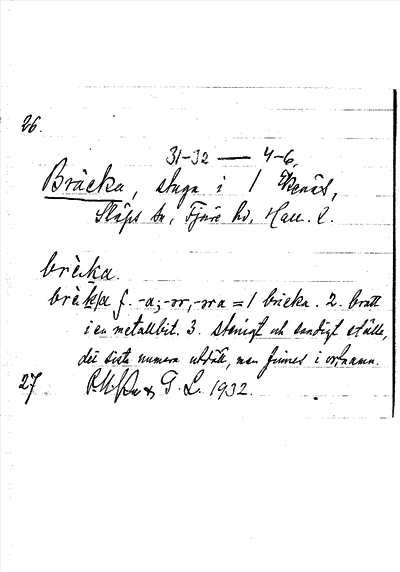 26.
31-32 — 4-6,
Bräcka, stuga i 1 Ekenäs,
Släps sn, Fjäre hd, Hall. l.
brècka.
brèka f. -a, -or, -ora = 1 bricka. 2. brott
i en metallbit. 3. stenigt och sandigt ställe,
det sista numera utdött, men finnes i ortnamn.
27 G. L. 1932.